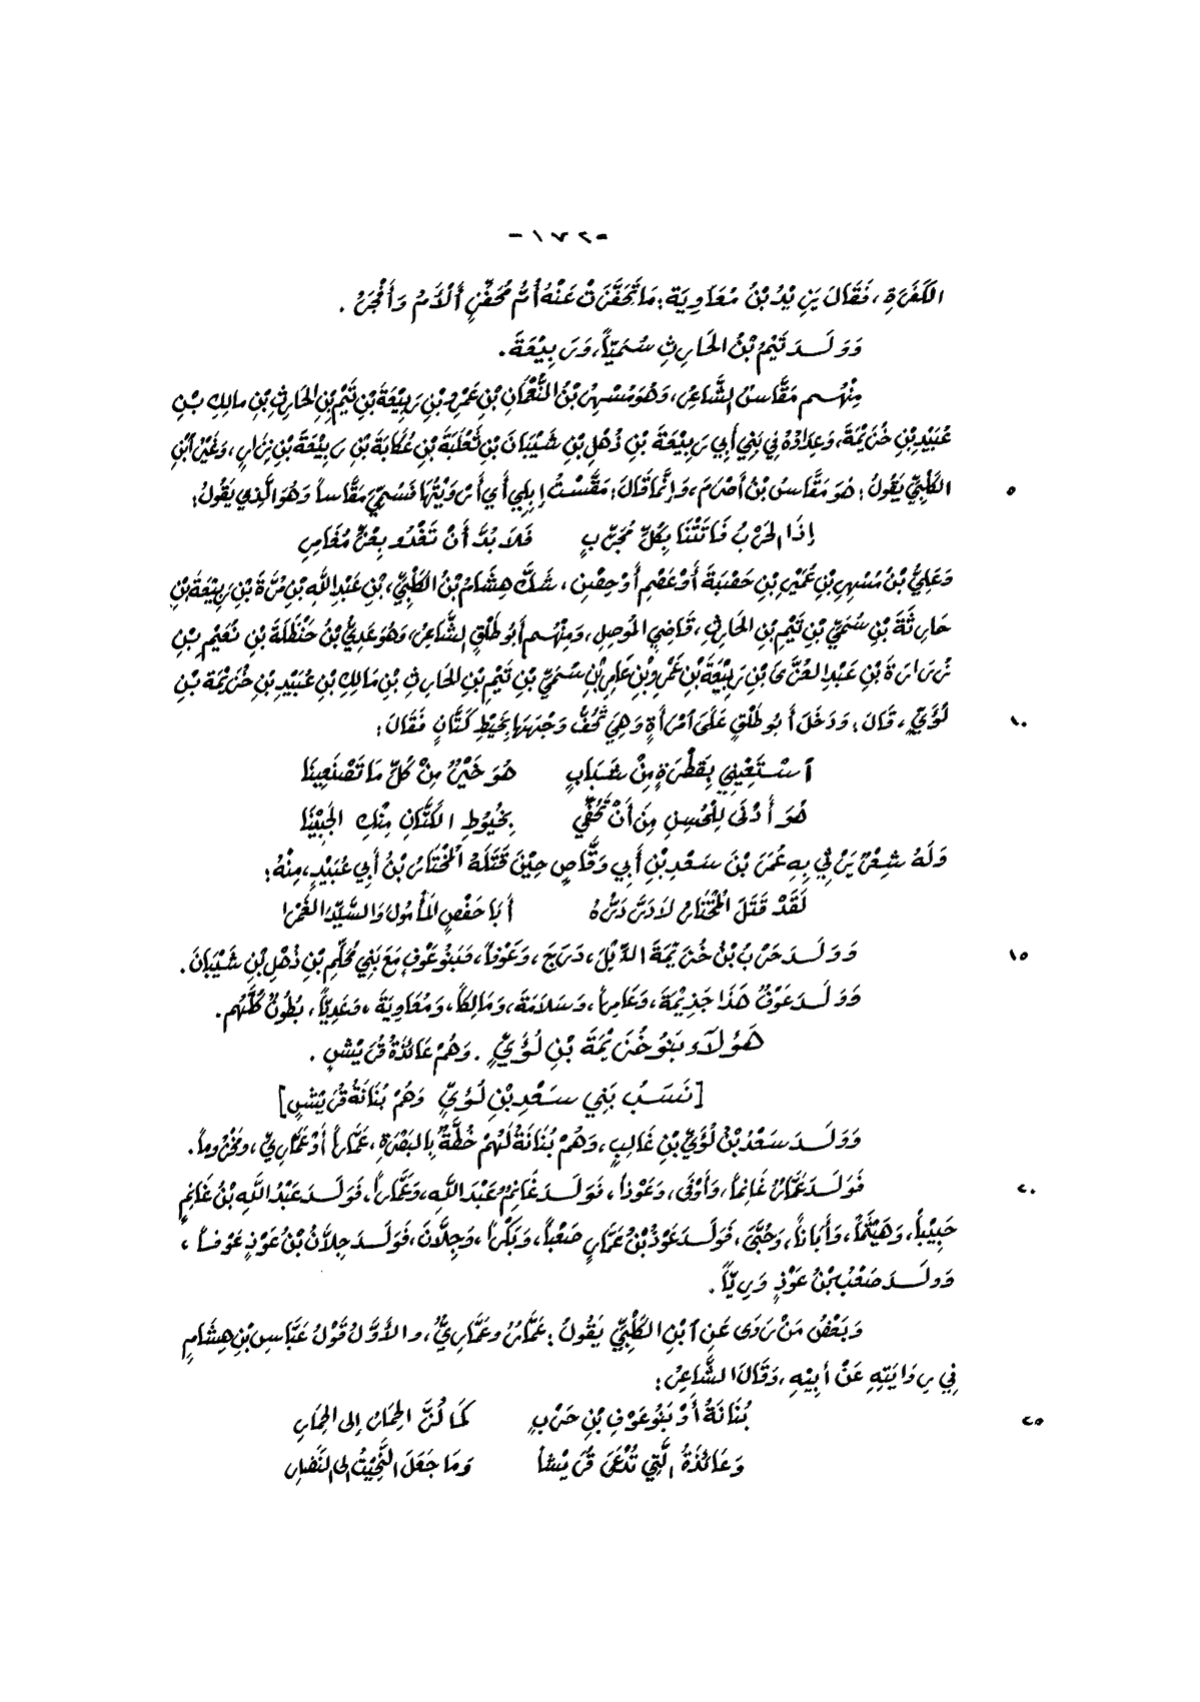 -١٧٢-
الكَفَرَةِ، فَقَالَ يَزِيْدُ بْنُ مُعَاوِيَة: مَا تَحَفَّزَتْ عَنْهُ أُمُّ مُحَفِّزٍ أَلْأَمُ وَأَفْجَرُ.
وَوَلَـدَ تَيْمُ بْنُ الحَارِثِ سُمَيّاً، وَرَبِيْعَةَ.
مِنْهُـم مَقَّاسٌ الشَّاعِرُ، وَهُوَ مُسْهِرُ بْنُ النُّعْمَانِ بْنِ عَمْرِو بْنِ رَبِيْعَةَ بْنِ تَيْمِ بْنِ الحَارِثِ بْنِ مالِكِ بْنِ
عُبَيْدِ بْنِ خُزَيْمَةَ، وَعِدَادُهُ فِي بَنِي أَبِي رَبِيْعَةَ بْنِ ذُهْلِ بْنِ شَيْبَانَ بْنِ ثَعْلَبَةَ بْنِ عُكَابَةَ بْنِ رَبِيْعَةَ بْنِ نِزَارٍ، وَغَيْرُ ابْنِ
الكَلْبِيِّ يَقُولُ: هُوَ مَقَّاسُ بْنُ أَصْرَمَ، وَإِنَّمَا قَالَ: مَقَّسْتُ إِبِلِي أَي أَرْوَيْتُهَا فَسُمِّيَ مَقَّاساً وَهُوَ الَّذِي يَقُولُ: ٥
إِذَا الحَرْبُ فَاتَتْنَا بِكُلِّ مُجَرَّبٍ فَلاَ بُدَّ أَنْ تَغْدُو بِعَزِّ مُغَامِرِ
وَعَلِيُّ بْنُ مُسْهِرِ بْنِ عُمَيْرِ بْنِ حَصْبَةَ أَوْ عُصْمٍ أَوْ حِصْنٍ، شَكَّ هِشَامُ بْنُ الكَلْبِيِّ، بْنِ عَبْدِ اللهِ بْنِ مُرَّةَ بْنِ رَبِيْعَةَ بْنِ
حَارِثَةَ بْنِ سُمَيِّ بْنِ تَيْمِ بْنِ الحَارِثِ، قَاضِي المُوصِلِ، وَمِنْهُـم أَبُو طَلْقٍ الشَّاعِرُ، وَهُوَ عَدِيُّ بْنُ حَنْظَلَةَ بْنِ نُعَيْمِ بْنِ
زُرَارَةَ بْنِ عَبْدِ العُزَّى بْنِ رَبِيْعَةَ بْنِ عَمْرِو بْنِ عَامِرِ بْنِ سُمَيِّ بْنِ تَيْمِ بْنِ الحَارِثِ بْنِ مَالِكِ بْنِ عُبَيْدِ بْنِ خُزَيْمَةَ بْنِ
لُؤَيٍّ، قَالَ: وَدَخَلَ أَبُو طَلْقٍ عَلَى امْرَأَةٍ وَهِيَ تَحُفُّ وَجْهَهَا بِخَيْطِ كَتَّانٍ فَقَالَ: ١٠
اسْتَغِيْثِي بِقَطْرَةٍ مِنْ شَبَابٍ هُوَ خَيْرٌ مِنْ كُلِّ مَا تَصْنَعِيْنَا
هُوَ أَدْنَى لِلْحُسنِ مِنَ أَنْ تَحُفِّي بِخُيُوطِ الكَتَّانِ مِنْكِ الجَبِيْنَا
وَلَهُ شِعْرٌ يَرْثِي بِهِ عُمَرَ بْنَ سَعْدِ بْنِ أَبِي وَقَّاصٍ حِيْنَ قَتَلَهُ المُخْتَارُ بْنُ أَبِي عُبَيْدٍ، مِنْهُ:
لَقَدْ قَتَلَ المُخْتَارُ لاَ دَرَّ دَرُّهُ أَبَا حَفْصٍ المَأْمُولَ وَالسَّيِّدَ الغَمْرَا
وَوَلَـدَ حَرْبُ بْنُ خُزَيْمَةَ الدِّيْلَ، دَرَجَ، وَعَوْفاً، فَبَنُو عَوْفٍ مَعَ بَنِي مُحَلِّمِ بْنِ ذُهْلِ بْنِ شَيْبَانَ. ١٥
وَوَلَـدَ عَوْفٌ هَذَا جَذِيْمَةَ، وَعَامِراً، وَسَلاَمَةَ، وَمَالِكاً، وَمُعَاوِيَةَ، وَعَدِيّاً، بُطُونٌ كُلُّهُم.
هَؤُلاَءِ بَنُو خُزَيْمَةَ بْنِ لُؤَيٍّ. وَهُمْ عَائِذَةُ قُرَيْشٍ.
[نَسَبُ بَنِي سَعْدِ بْنِ لُؤَيٍّ وَهُمْ بُنَانَةُ قُرَيْشٍ]
وَوَلَـدَ سَعْدُ بْنُ لُؤَيِّ بْنِ غَالِبٍ، وَهُمْ بُنَانَةُ لَهُمْ خُطَّةٌ بِالبَصْرَةِ، عَمَّاراً أَوْ عَمَّارِيّ، وَمَخْزُوماً.
فَوَلَـدَ عَمَّارٌ غَانِماً، وَأَوْفَى، وَعَوْذاً، فَوَلَـدَ غَانِمٌ عَبْدَ اللهِ، وَعَمَّاراً، فَوَلَـدَ عَبْدُ اللهِ بْنُ غَانِمٍ ٢٠
حَبِيْباً، وَهَيْثَماً، وَأَبَاناً، وَحُبَّى، فَوَلَـدَ عَوْذُ بْنُ عَمَّارٍ صَعْباً، وَبَكْراً، وَجِلاَّنَ، فَوَلَـدَ جِلاَّنُ بْنُ عَوْذٍ عَوْضاً،
وَوَلَـدَ صَعْبُ بْنُ عَوْذٍ وَرِيّاً.
وَبَعْضُ مَنْ رَوَى عَنِ ابْنِ الكَلْبِيِّ يَقُولُ: عَمَّارٌ وعَمَّارِيٌّ، والأَوَّلُ قَوْلُ عَبَّاسِ بْنِ هِشَامٍ
فِي رِوَايَتِهِ عَنْ أَبِيْهِ، وَقَالَ الشَّاعِرُ:
بُنَانَةُ أَوْ بَنُو عَوْفِ بْنِ حَرْبٍ كَمَا لُزَّ الحِمَارُ إِلى الحِمَارِ ٢٥
وَعَائِذَةُ الَّتِي تُدْعَى قُرَيْشاً وَمَا جَعَلَ النَّحِيْتُ إِلى النَّضَارِ